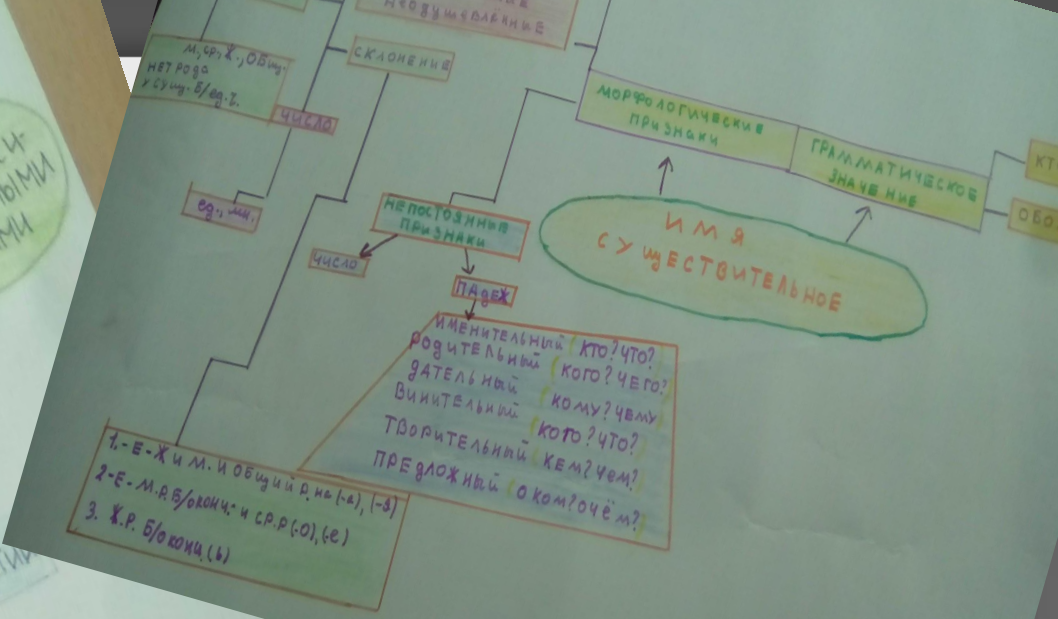 НЕОДУШЕВЛЕННЫЕ
М, СР, Ж., ОБЩ.
НЕТ РОДА
У СУЩ. Б/ЕД.Ч.
СКЛОНЕНИЕ
ЧИСЛО
ЕД., МН.
МОРФОЛОГИЧЕСКИЕ
ПРИЗНАКИ
ГРАММАТИЧЕСКОЕ
ЗНАЧЕНИЕ
КТ
ОБО
НЕПОСТОЯННЫЕ
ПРИЗНАКИ
ИМЯ
СУЩЕСТВИТЕЛЬНОЕ
ЧИСЛО
ПАДЕЖ
ИМЕНИТЕЛЬНЫЙ (КТО? ЧТО?)
РОДИТЕЛЬНЫЙ (КОГО? ЧЕГО?)
ДАТЕЛЬНЫЙ (КОМУ? ЧЕМУ)
ВИНИТЕЛЬНЫЙ (КОГО? ЧТО?)
ТВОРИТЕЛЬНЫЙ (КЕМ? ЧЕМ?)
ПРЕДЛОЖНЫЙ (О КОМ? О ЧЁМ?)
1.-Е-Ж И М. И ОБЩИЙ Р. НА (-А), (-Я)
2-Е- М.Р. Б/ОКОНЧ. И СР.Р (-О), (-Е)
3. Ж.Р. Б/ОКОНЧ. (Ь)
И-
ЫМИ
АМИ